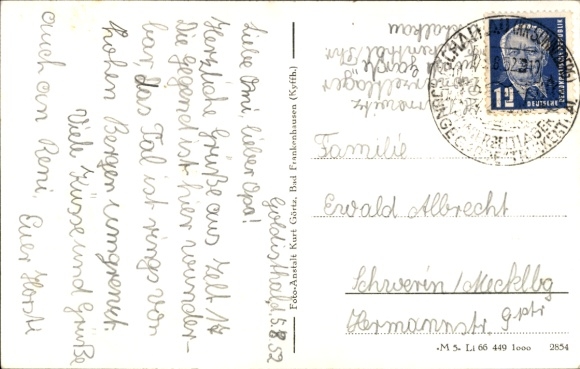 Goldisthal, d. 5.8.52
Liebe Omi, lieber Opa!
Herzliche Grüße aus Zelt 17
Die Gegend ist hier wunder-
bar, das Tal ist rings von
hohen Bergen umgrenzt
Viele Küsse und Grüße
auch an Reni. Euer Horsti
Foto-Anstalt Kurt Görtz, Bad Frankenhausen (Kyffh.)
12
DEUTSCHE
Familie
Ewald Albrecht
Schwerin/Mecklbg
Hermannstr. 9 ptr
M 5 Li 66 449 1000 2854